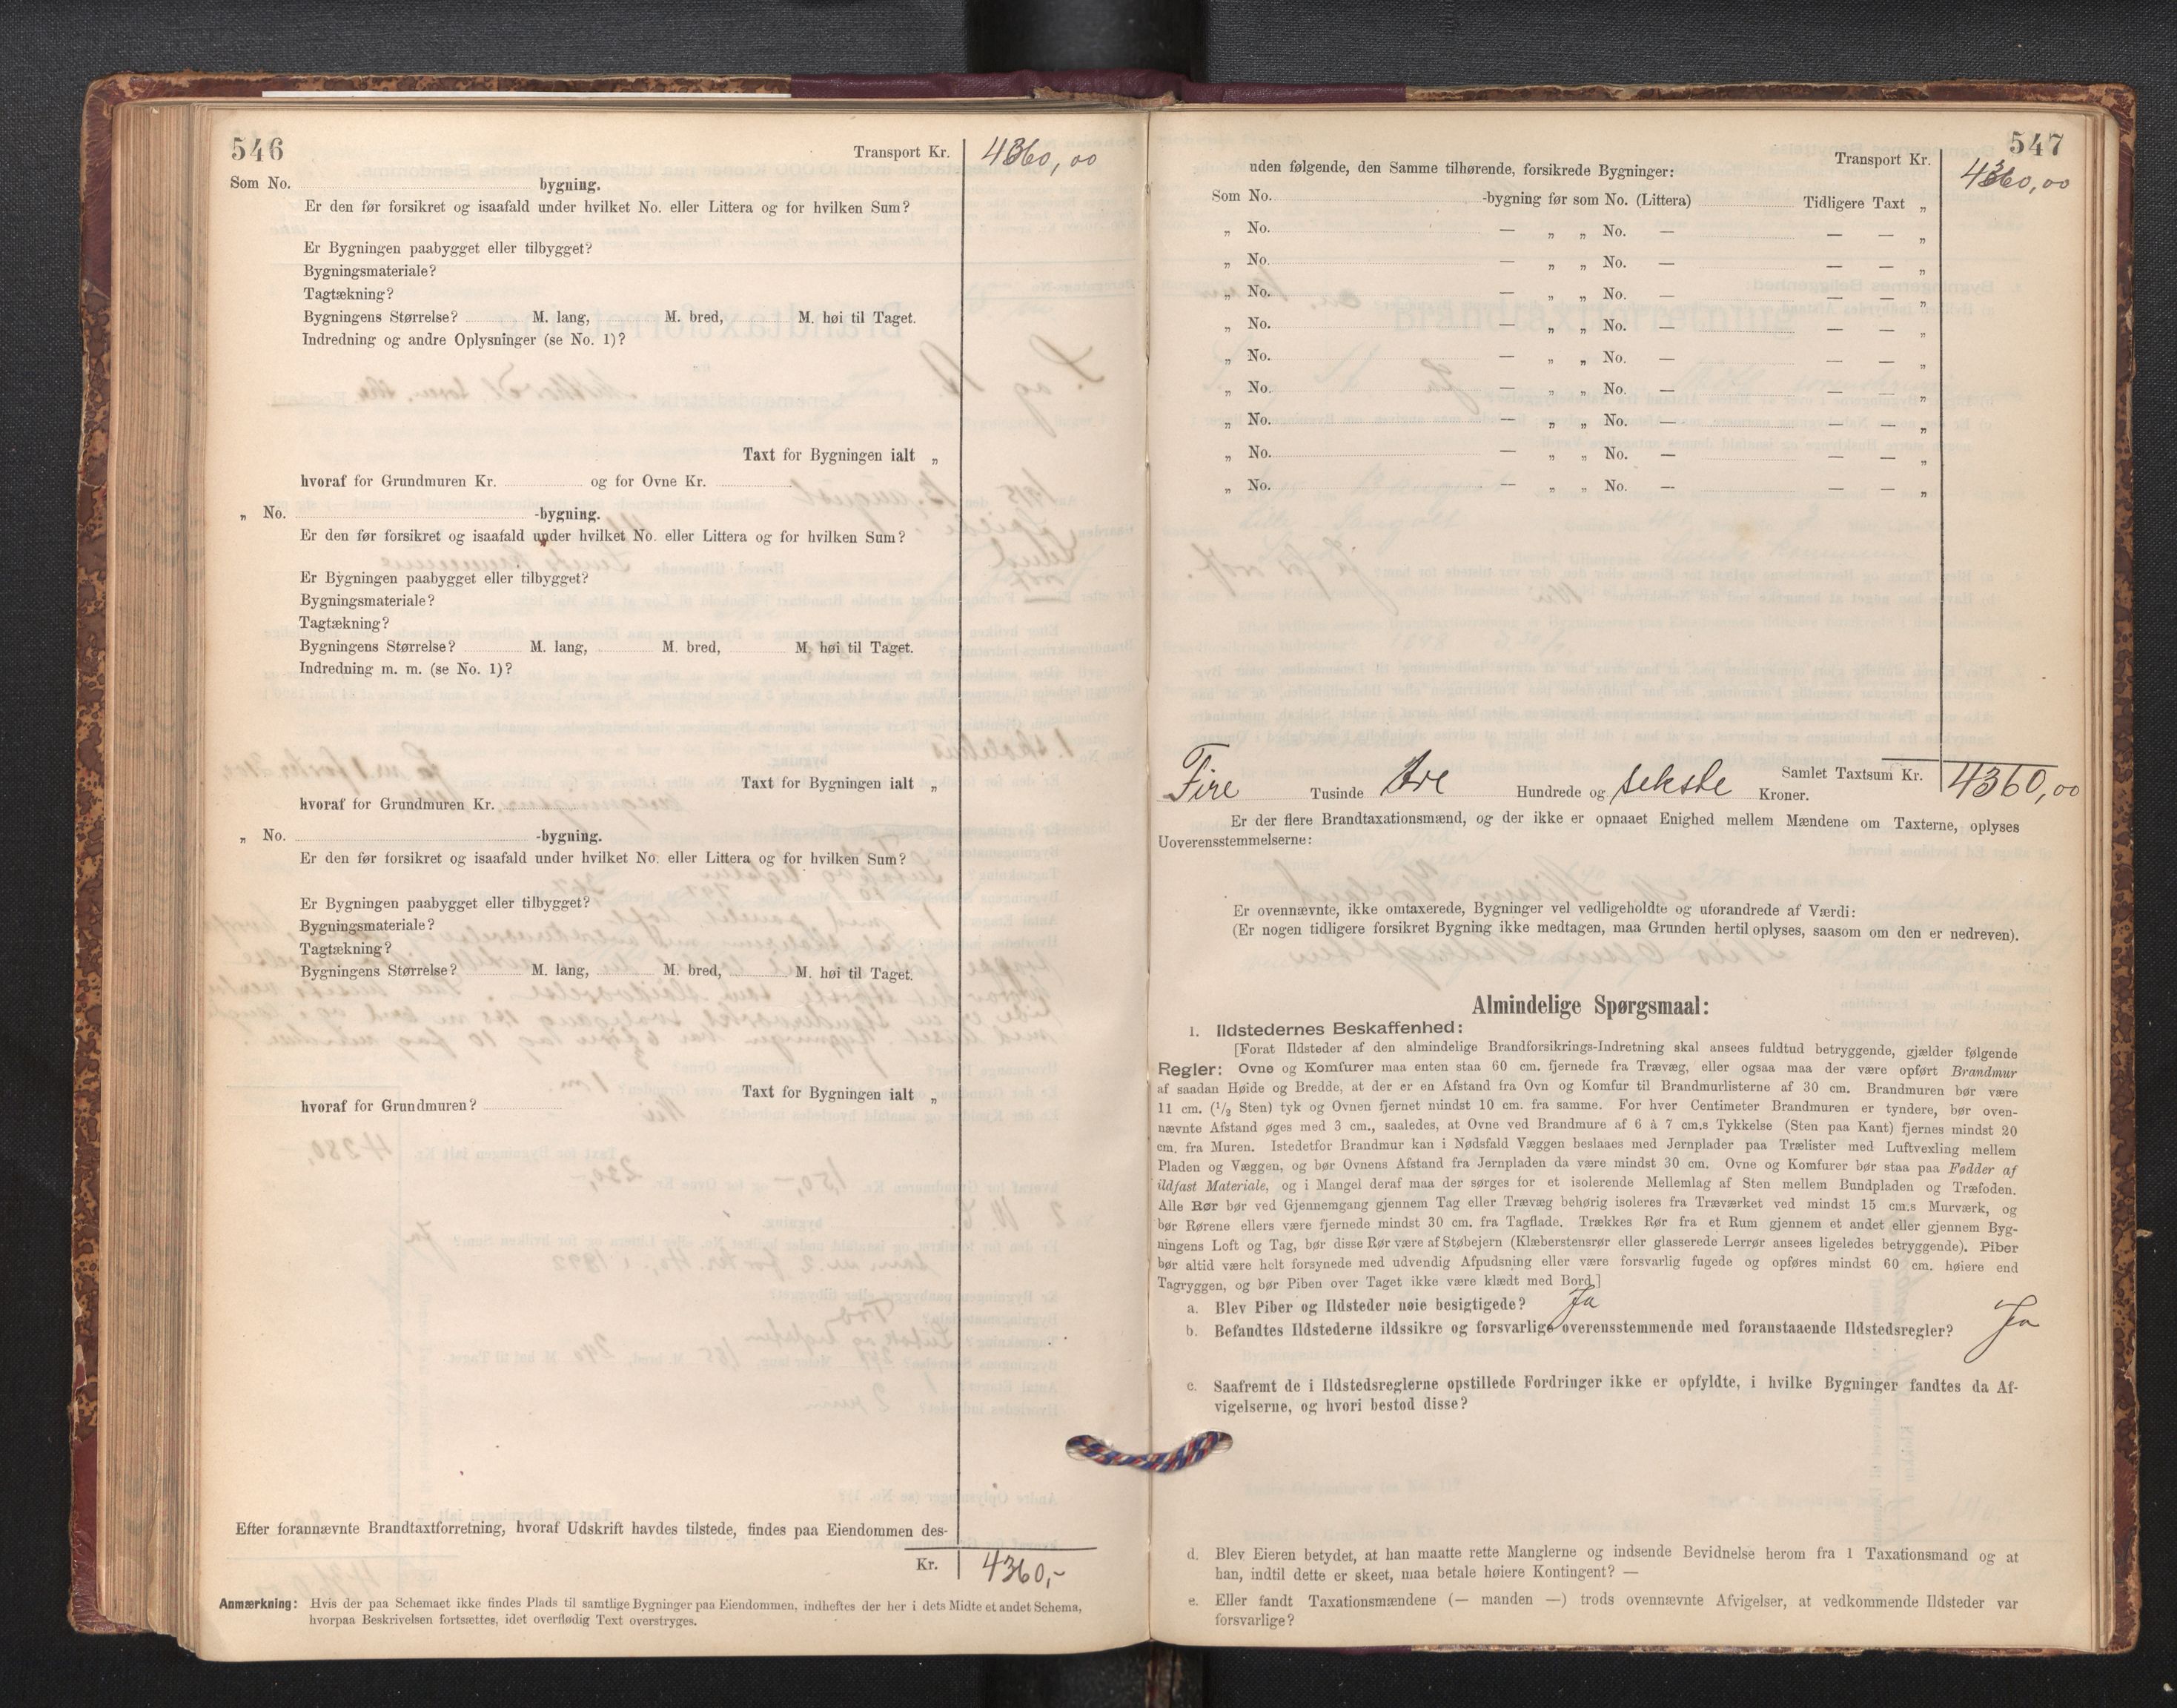 546
Transport Kr. 4360,00
Som No. bygning.
Er den før forsikret og isaafald under hvilket No. eller Littera og for hvilken Sum?
Er Bygningen paabygget eller tilbygget?
Bygningsmateriale?
Tagtækning?
Bygningens Størrelse? M. lang, M. bred, M. høi til Taget.
Indredning og andre Oplysninger (se No. 1)?
Taxt for Bygningen ialt „
hvoraf for Grundmuren Kr. og for Ovne Kr.
„ No. -bygning.
Er den før forsikret og isaafald under hvilket No. eller Littera og for hvilken Sum?
Er Bygningen paabygget eller tilbygget?
Bygningsmateriale?
Tagtækning?
Bygningens Størrelse? M. lang, M. bred, M. høi til Taget.
Indredning m. m. (se No. 1)?
Taxt for Bygningen ialt „
hvoraf for Grundmuren Kr.
„ No. -bygning.
Er den før forsikret og isaafald under hvilket No. eller Littera og for hvilken Sum?
Er Bygningen paabygget eller tilbygget?
Bygningsmateriale?
Tagtækning?
Bygningens Størrelse? M. lang, M. bred, M. høi til Taget.
Taxt for Bygningen ialt „
hvoraf for Grundmuren?
Efter forannævnte Brandtaxtforretning, hvoraf Udskrift havdes tilstede, findes paa Eiendommen des-
Kr. 4360,-
Anmærkning: Hvis der paa Schemaet ikke findes Plads til samtlige Bygninger paa Eiendommen, indheftes der her i dets Midte et andet Schema,
hvorpaa Beskrivelsen fortsættes, idet overflødig Text overstryges.
547
Transport Kr. 4360,00
uden følgende, den Samme tilhørende, forsikrede Bygninger:
Som No. -bygning før som No. (Littera) Tidligere Taxt „
„ No. — „ „ No. — — — „
„ No. — „ „ No. — — — „
„ No. — „ „ No. — — — „
„ No. — „ „ No. — — — „
„ No. — „ „ No. — — — „
„ No. — „ „ No. — — — „
„ No. — „ „ No. — — — „
„ No. — „ „ No. — — — „
„ No. — „ „ No. — — — „
Samlet Taxtsum Kr. 4360,00
Fire Tusinde tre Hundrede og sekste Kroner.
Er der flere Brandtaxationsmænd, og der ikke er opnaaet Enighed mellem Mændene om Taxterne, oplyses
Uoverensstemmelserne:
Er ovennævnte, ikke omtaxerede, Bygninger vel vedligeholdte og uforandrede af Værdi:
(Er nogen tidligere forsikret Bygning ikke medtagen, maa Grunden hertil oplyses, saasom om den er nedreven).
Almindelige Spørgsmaal:
1. Ildstedernes Beskaffenhed:
[Forat Ildsteder af den almindelige Brandforsikrings-Indretning skal ansees fuldtud betryggende, gjælder følgende
Regler: Ovne og Komfurer maa enten staa 60 cm. fjernede fra Trævæg, eller ogsaa maa der være opført Brandmur
af saadan Høide og Bredde, at der er en Afstand fra Ovn og Komfur til Brandmurlisterne af 30 cm. Brandmuren bør være
11 cm. (1/2 Sten) tyk og Ovnen fjernet mindst 10 cm. fra samme. For hver Centimeter Brandmuren er tyndere, bør oven-
nævnte Afstand øges med 3 cm., saaledes, at Ovne ved Brandmure af 6 à 7 cm.s Tykkelse (Sten paa Kant) fjernes mindst 20
cm. fra Muren. Istedetfor Brandmur kan i Nødsfald Væggen beslaaes med Jernplader paa Trælister med Luftvexling mellem
Pladen og Væggen, og bør Ovnens Afstand fra Jernpladen da være mindst 30 cm. Ovne og Komfurer bør staa paa Fødder af
ildfast Materiale, og i Mangel deraf maa der sørges for et isolerende Mellemlag af Sten mellem Bundpladen og Træfoden.
Alle Rør bør ved Gjennemgang gjennem Tag eller Trævæg behørig isoleres fra Træværket ved mindst 15 cm:s Murværk, og
bør Rørene ellers være fjernede mindst 30 cm. fra Tagflade. Trækkes Rør fra et Rum gjennem et andet eller gjennem Byg-
ningens Loft og Tag, bør disse Rør være af Støbejern (Klæberstensrør eller glasserede Lerrør ansees ligeledes betryggende). Piber
bør altid være helt forsynede med udvendig Afpudsning eller være forsvarlig fugede og opføres mindst 60 cm. høiere end
Tagryggen, og bør Piben over Taget ikke være klædt med Bord.]
a. Blev Piber og Ildsteder nøie besigtigede? Ja
b. Befandtes Ildstederne ildssikre og forsvarlige overensstemmende med foranstaaende Ildstedsregler? Ja
c. Saafremt de i Ildstedsreglerne opstillede Fordringer ikke er opfyldte, i hvilke Bygninger fandtes da Af-
vigelserne, og hvori bestod disse?
d. Blev Eieren betydet, at han maatte rette Manglerne og indsende Bevidnelse herom fra 1 Taxationsmand og at
han, indtil dette er skeet, maa betale høiere Kontingent? —
e. Eller fandt Taxationsmændene (— manden —) trods ovennævnte Afvigelser, at vedkommende Ildsteder var
forsvarlige?